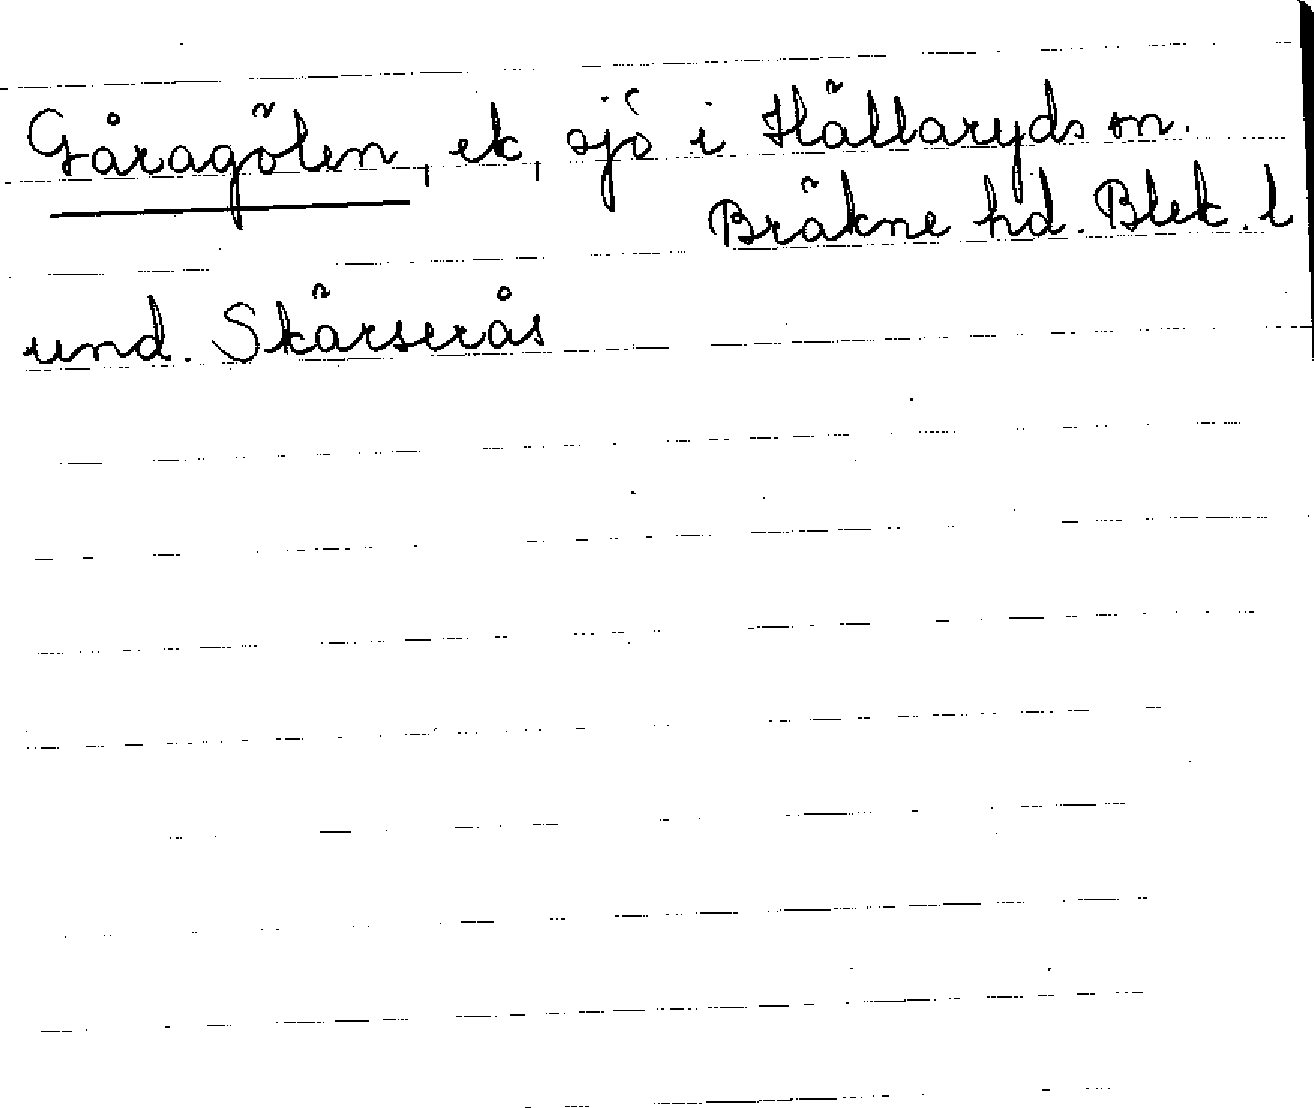 Gåragölen, ek, sjö i Hällaryds sn.
Bräkne hd. Blek. l
und. Skärserås